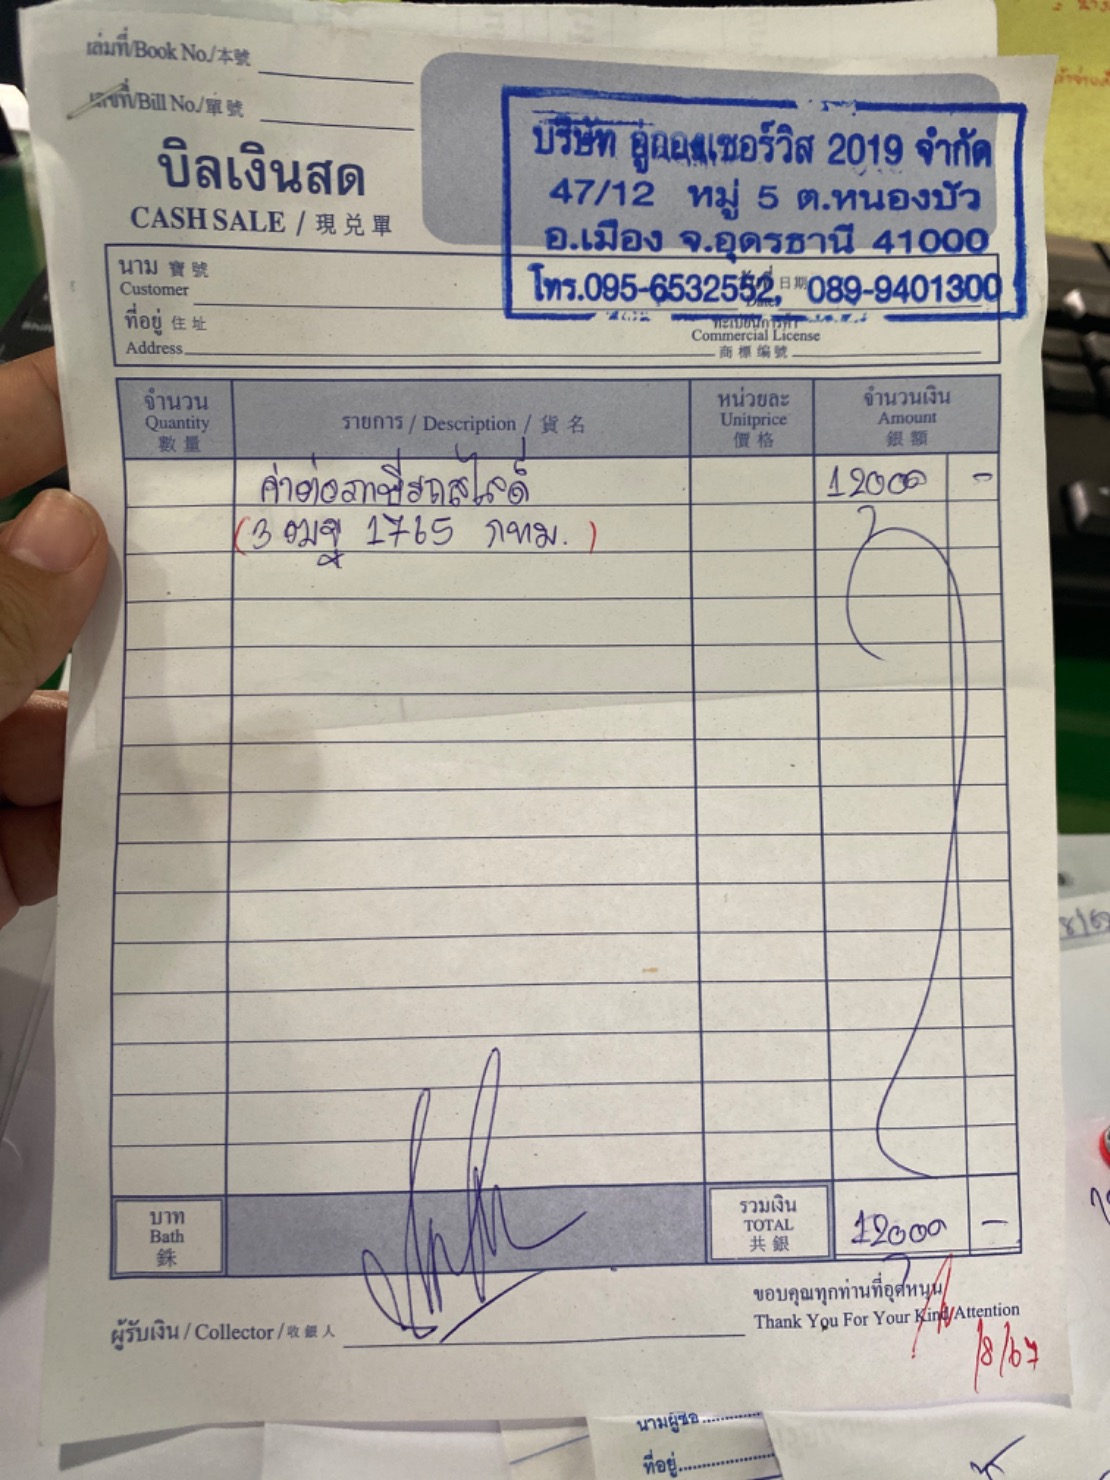 เล่มที่/Book No./本號
เลขที่/Bill No./單號
บิลเงินสด
CASH SALE / 現兌單
บริษัท อู่กองเซอร์วิส 2019 จำกัด
47/12 หมู่ 5 ต.หนองบัว
อ.เมือง จ.อุดรธานี 41000
โทร.095-6532552, 089-9401300
นาม 寶號
Customer
日期
ที่อยู่ 住址
Address
ทะเบียนการค้า
Commercial License
商標编號
จำนวน
Quantity
數量
รายการ / Description / 貨名
หน่วยละ
Unitprice
價格
จำนวนเงิน
Amount
銀額
ค่าต่อภาษีรถสไลด์ 12000 -
(3 ฒฐ 1765 กทม.)
บาท
Bath
銖
รวมเงิน
TOTAL
共銀
12000 -
ขอบคุณทุกท่านที่อุดหนุน
Thank You For Your Kind Attention
ผู้รับเงิน / Collector / 收銀人
/8/67
นามผู้ซื้อ
ที่อยู่